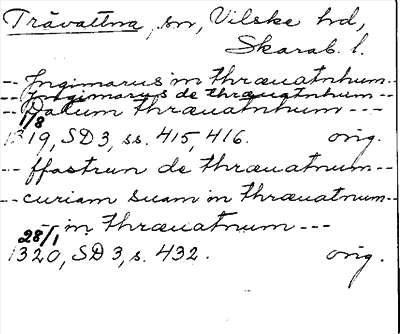 Trävattna, sn, Vilske hd,
Skarab. l.
-- Ingimarus in thræuatnhum --
-- Ingimarus de thræuatnhum --
-- Datum thræuatnhum ---
1/8
1319, SD 3, ss. 415, 416. orig.
-- ffastrun de thræuatnum --
-- curiam suam in thræuatnum --
-- in thræuatnum ---
28/1
1320, SD 3, s. 432. orig.